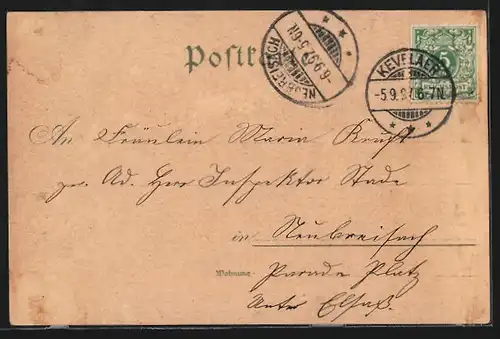 Postkarte
NEUBREISACH
6.9.97.5-6N.
KEVELAER
-5.9.97.6-7N.
An Fräulein Maria Kraft
pr. Ad. Herr Inspektor Stade
in Neubreisach
Wohnung Parade Platz
Unter Elsaß.